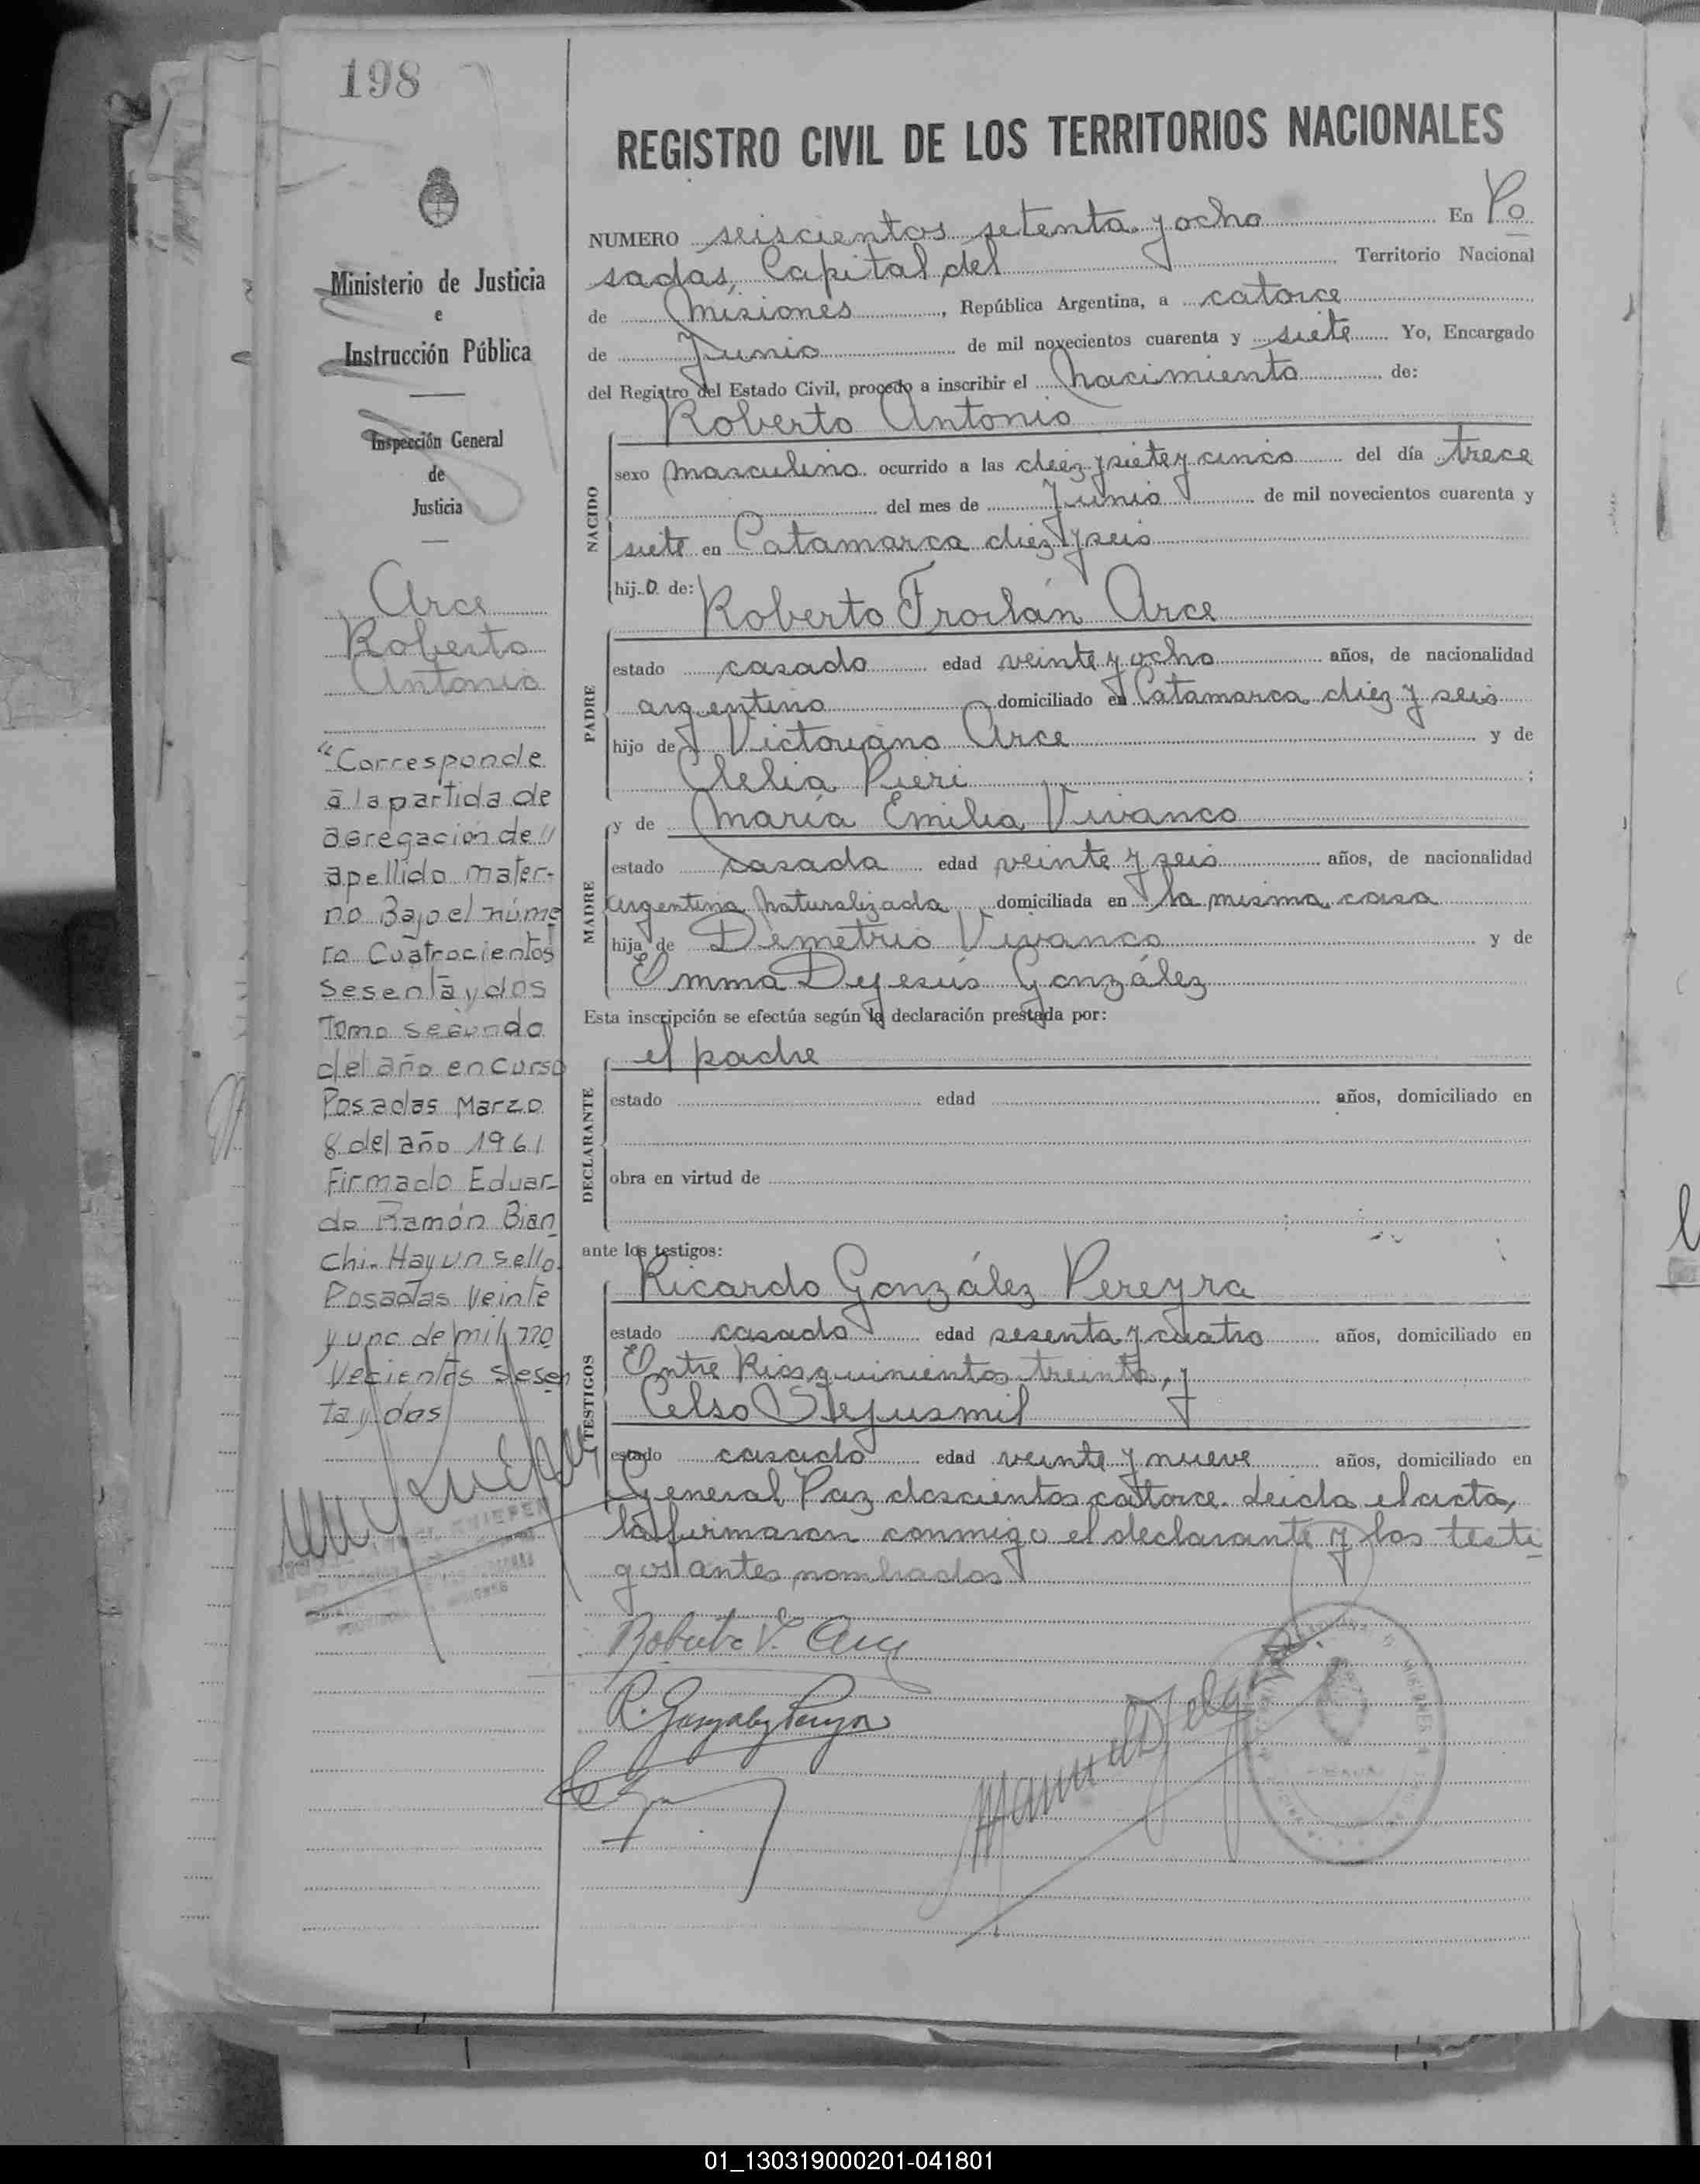 198
REGISTRO CIVIL DE LOS TERRITORIOS NACIONALES
Ministerio de Justicia
e
Instrucción Pública
Inspección General
de
Justicia
Arce
Roberto
Antonio
"Corresponde
a la partida de
agregación de "
apellido mater-
no Bajo el núme
ro Cuatrocientos
Sesenta y dos
Tomo segundo
del año en curso
Posadas Marzo
8 del año 1961
Firmado Eduar-
do Ramón Bian
chi.- Hay un sello.
Posadas Veinte
y uno de mil no
vecientos Sesen
ta y dos
NUMERO seiscientos setenta y ocho En Po
sadas, Capital del Territorio Nacional
de Misiones, República Argentina, a catorce
de Junio de mil novecientos cuarenta y siete Yo, Encargado
del Registro del Estado Civil, procedo a inscribir el Nacimiento de:
Roberto Antonio
NACIDO
sexo masculino ocurrido a las diez y siete y cinco del día trece
del mes de Junio de mil novecientos cuarenta y
siete en Catamarca diez y seis
hijo de:
Roberto Froilán Arce
PADRE
estado casado edad veinte y ocho años, de nacionalidad
argentino domiciliado en Catamarca diez y seis
hijo de Victoriano Arce y de
Clelia Pieri ;
y de María Emilia Vivanco
MADRE
estado casada edad veinte y seis años, de nacionalidad
argentina naturalizada domiciliada en la misma casa
hija de Demetrio Vivanco y de
Emma Dejesús González
Esta inscripción se efectúa según la declaración prestada por:
el padre
DECLARANTE
estado edad años, domiciliado en
obra en virtud de
ante los testigos:
Ricardo González Pereyra
TESTIGOS
estado casado edad sesenta y cuatro años, domiciliado en
Entre Rios quinientos treinta, y
Celso
estado casado edad veinte y nueve años, domiciliado en
General Paz doscientos catorce. Leida el acta,
la firmaron conmigo el declarante y los testi
gos antes nombrados
Roberto F. Arce
R. González Pereyra
01_130319000201-041801